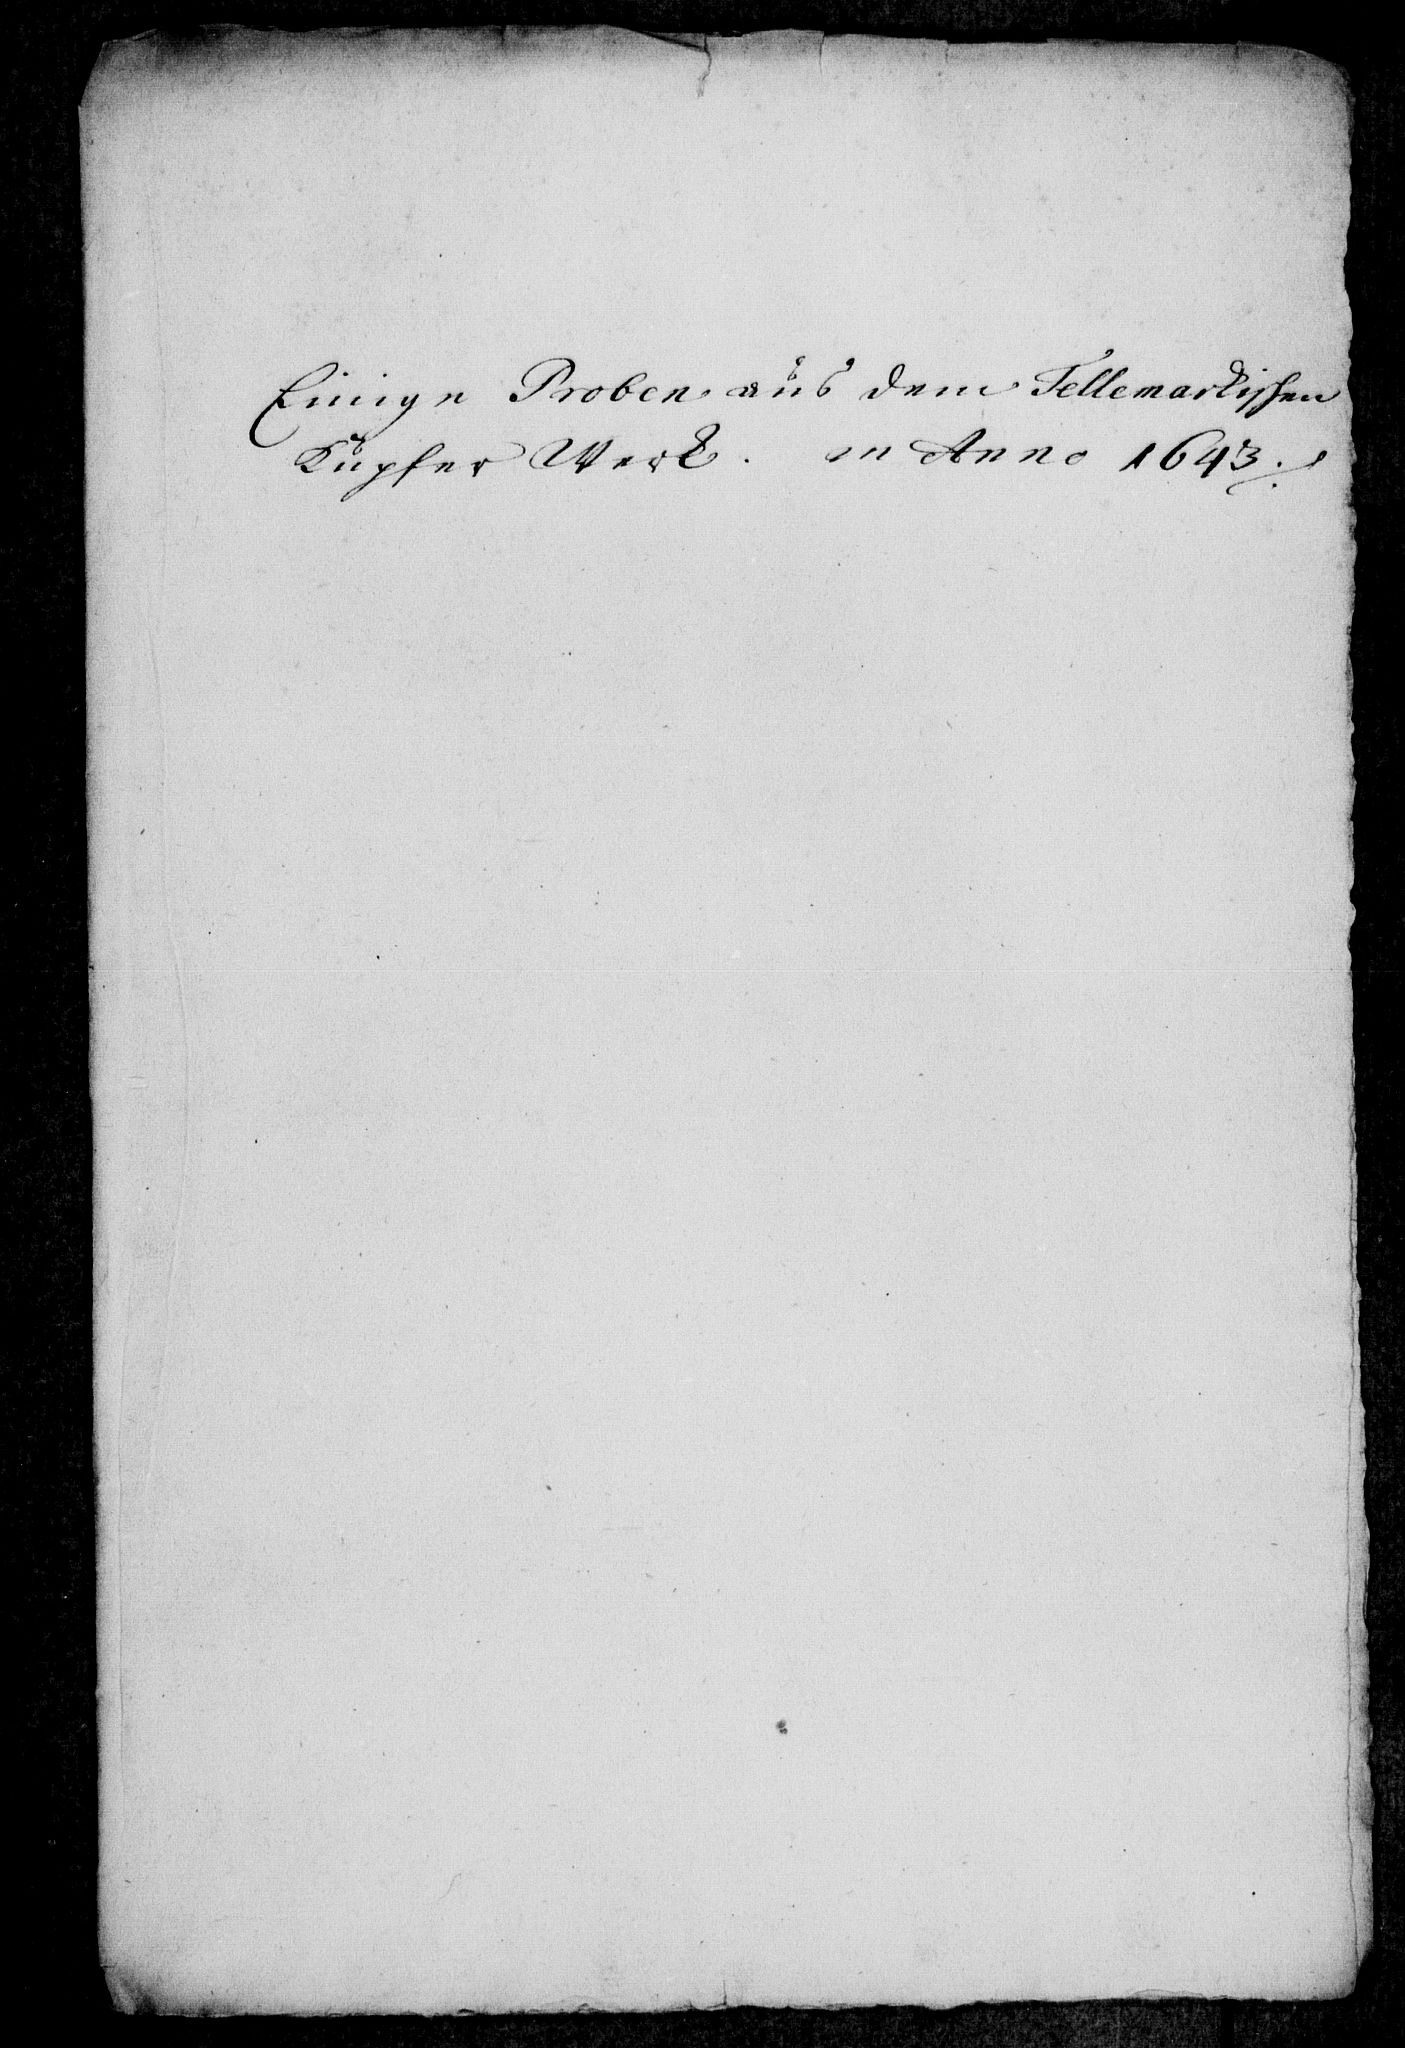 Einige Proben aus dem Tellemarkischen
Kupfer Werk. in Anno 1643.